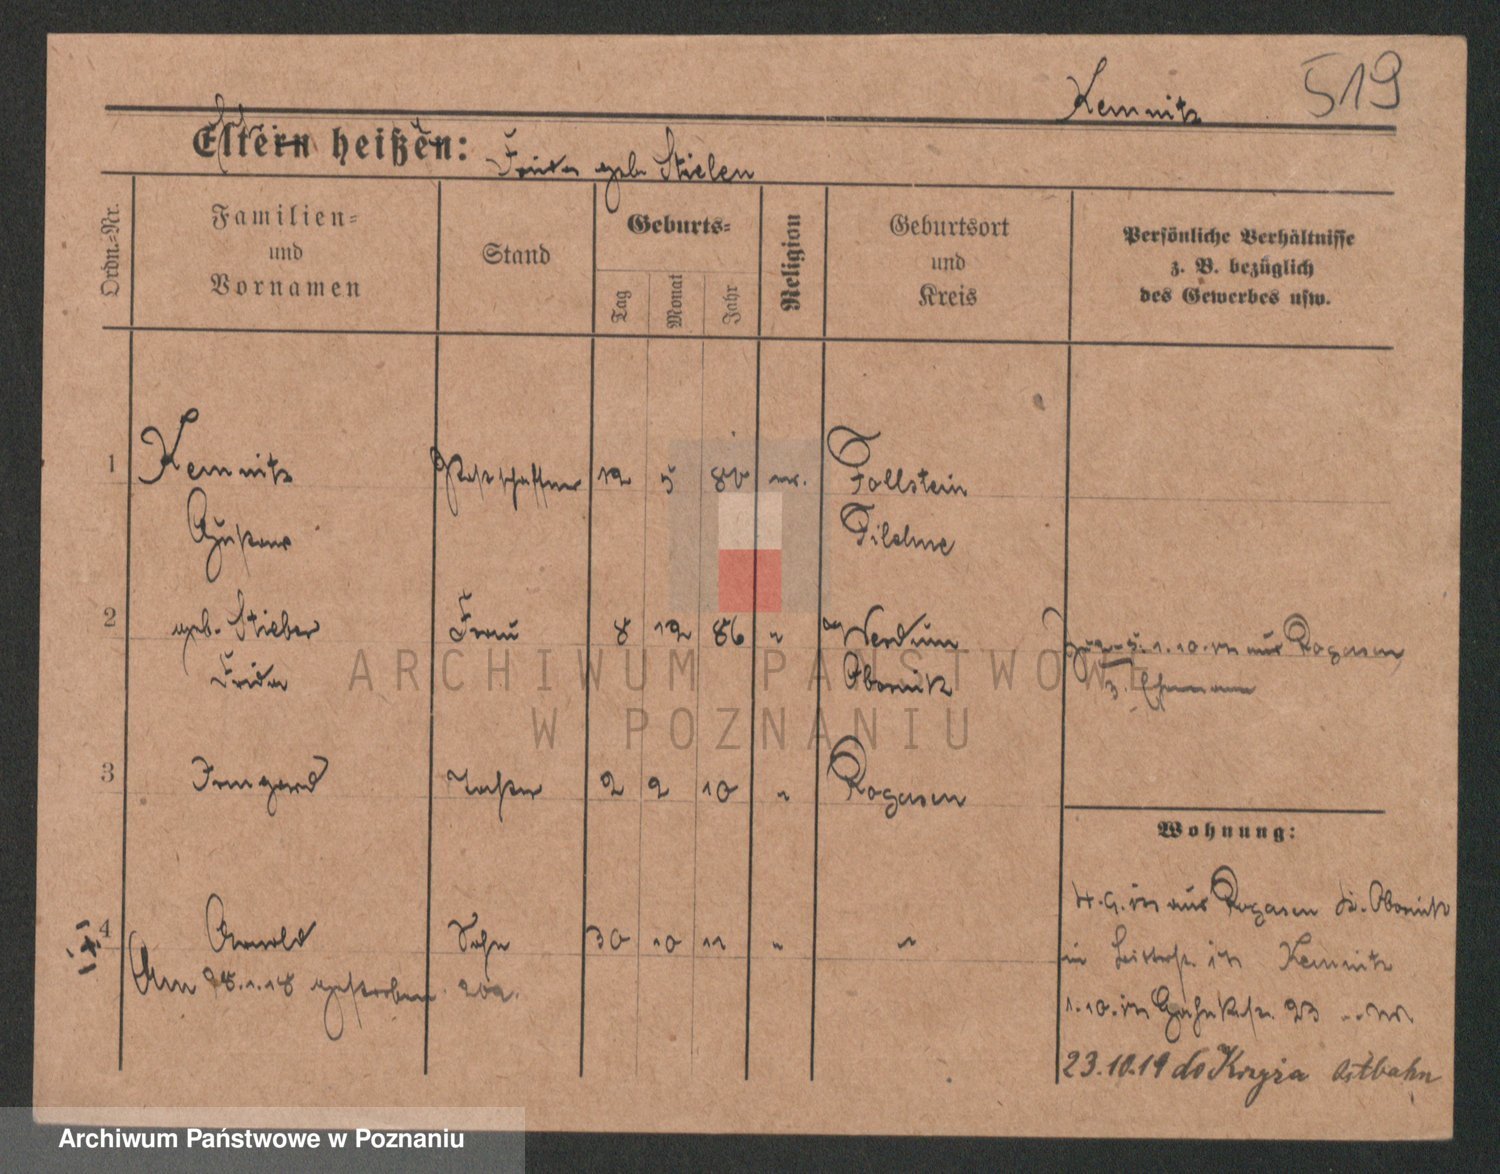 Kemnitz
519
Eltern heißen:
geb. Stielen
Ordn.=Nr.
Familien=
und
Vornamen
Stand
Geburts=
Tag
Monat
Jahr
Religion
Geburtsort
und
Kreis
Persönliche Verhältnisse
z. B. bezüglich
des Gewerbes usw.
1 Kemnitz Postschaffner 12 5 80 ev. Follstein
Gustav Filehne
2 geb. Stieber Frau 8 12 86 " Werdum
Frida Obornik
1.10. aus Rogasen
z. Ehemann
3 Irmgard Tochter 2 2 10 " Rogasen
Wohnung:
4 Arnold Sohn 30 10 11 " "
Am 28.1.18 gestorben. 202.
aus Rogasen Kr. Obornik
in Kemnitz
1.10. 23
23.10.19 do Krzyża Ostbahn
ARCHIWUM PAŃSTWOWE
W POZNANIU
Archiwum Państwowe w Poznaniu